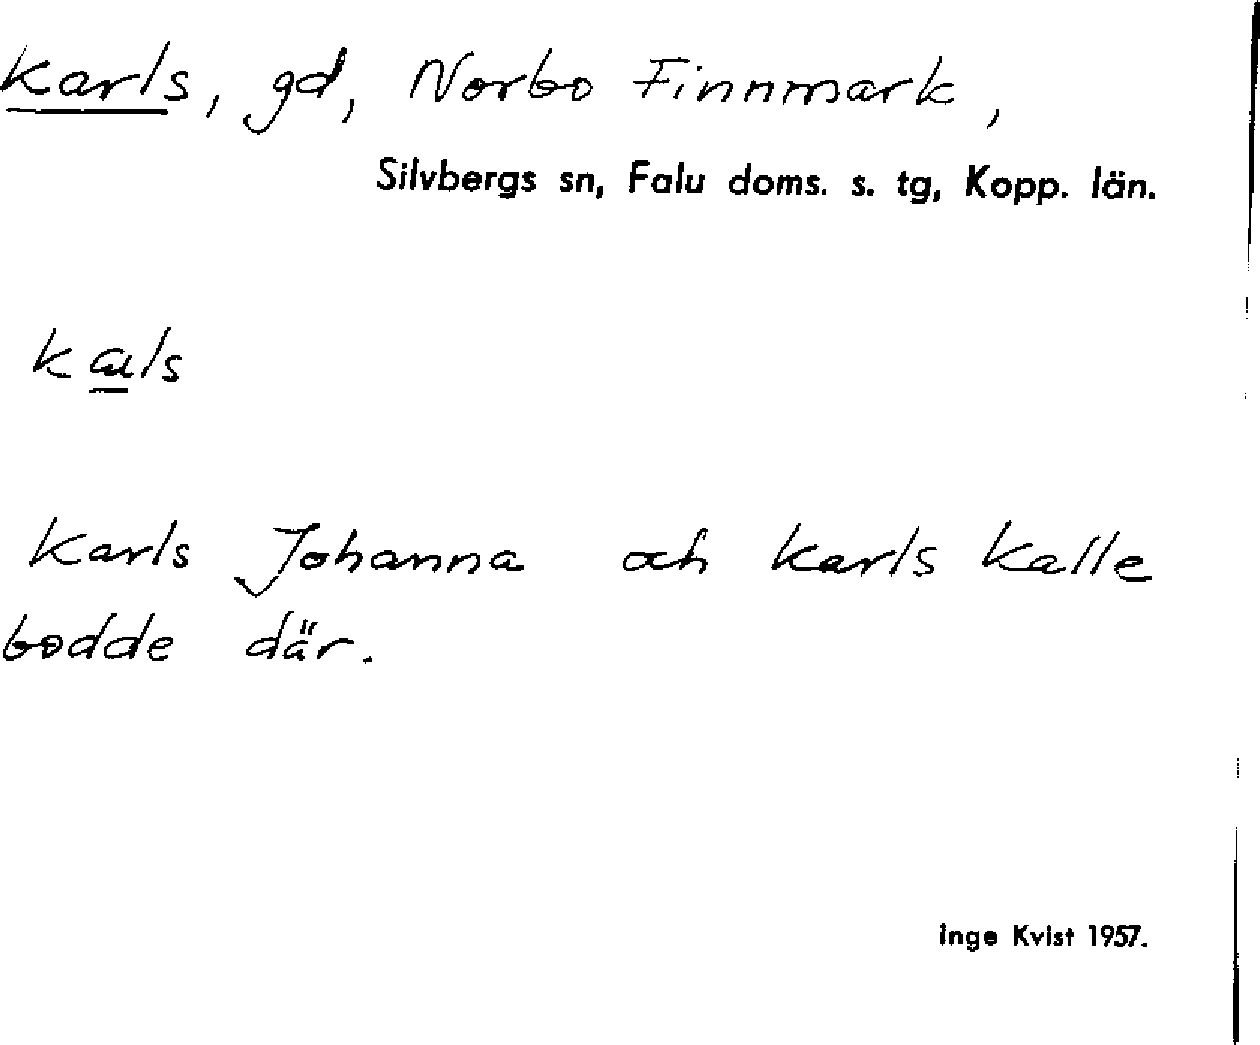 Karls, gd, Norbo Finnmark,
Silvbergs sn, Falu doms. s. tg, Kopp. län.
kals
Karls Johanna och Karls Kalle
bodde där.
Inge Kvist 1957.